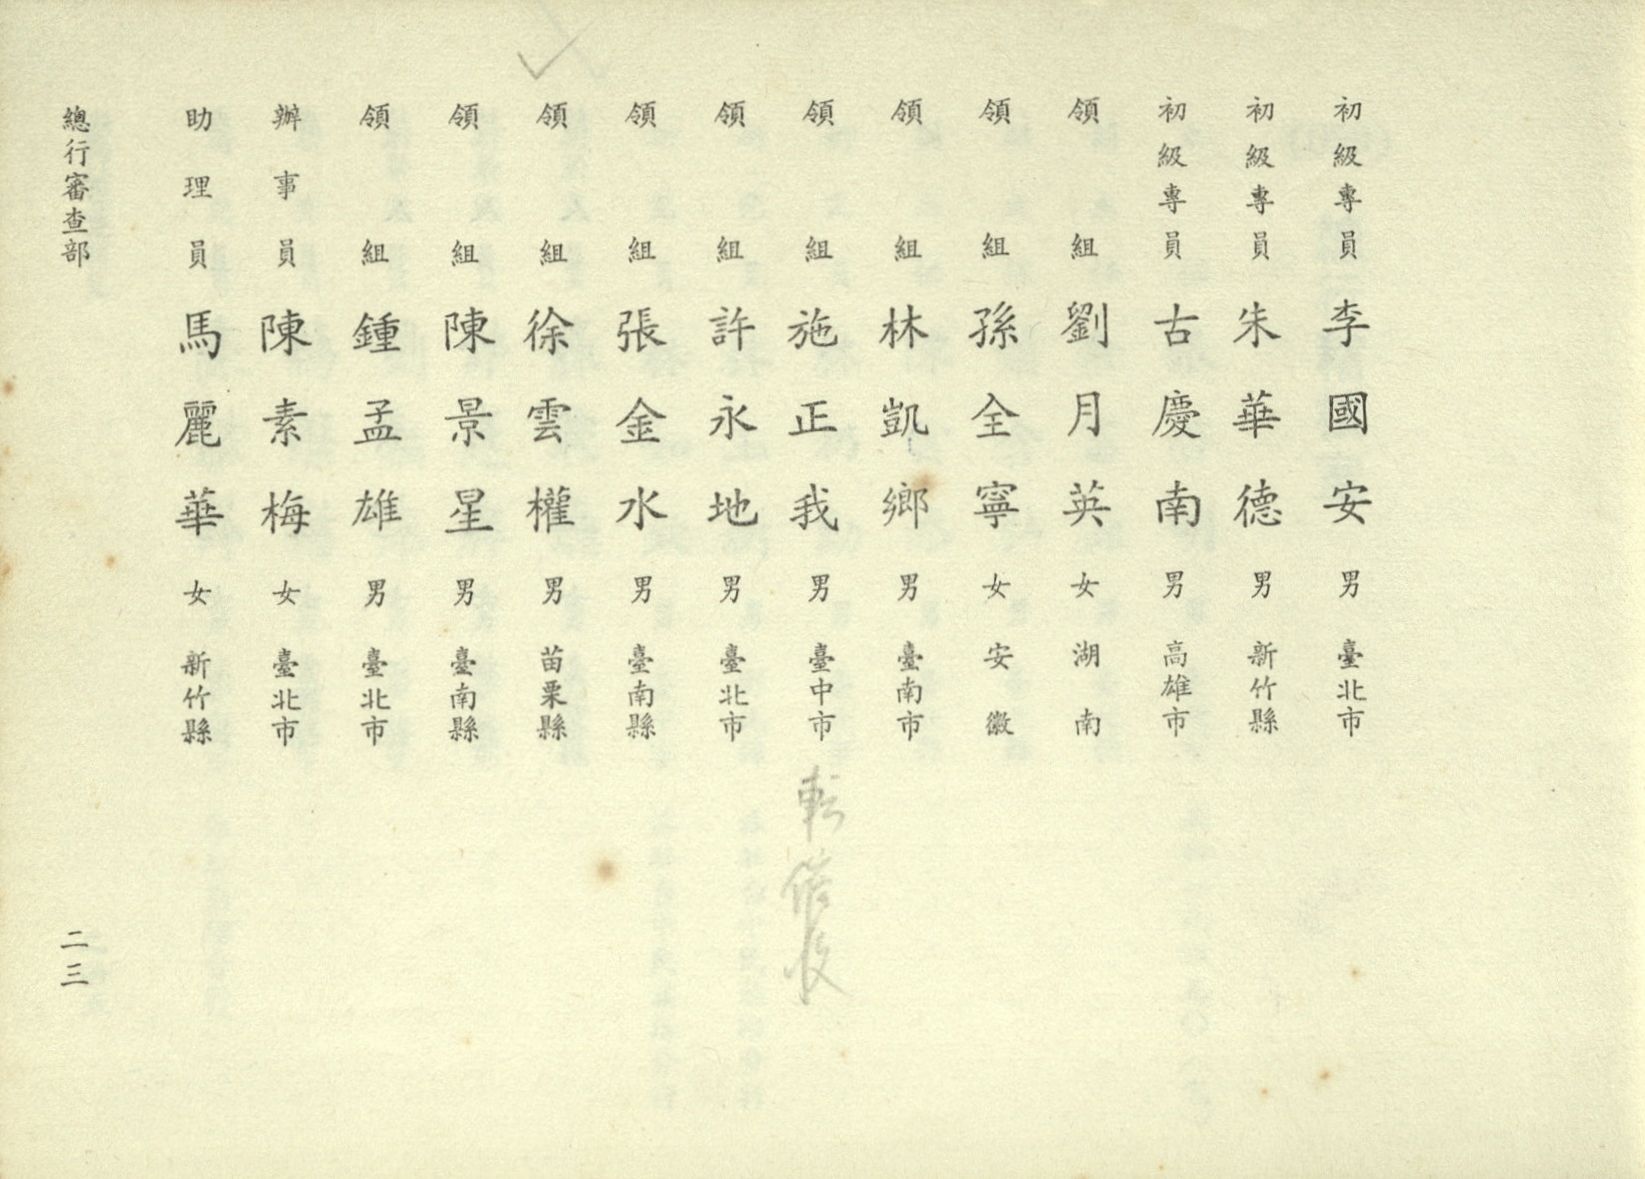 初級專員 李國安 男 臺北市
初級專員 朱華德 男 新竹縣
初級專員 古慶南 男 高雄市
領組 劉月英 女 湖南
領組 孫全寧 女 安徽
領組 林凱鄉 男 臺南市
領組 施正我 男 臺中市
領組 許永地 男 臺北市
領組 張金水 男 臺南縣
領組 徐雲權 男 苗栗縣
領組 陳景星 男 臺南縣
領組 鍾孟雄 男 臺北市
辦事員 陳素梅 女 臺北市
助理員 馬麗華 女 新竹縣
總行審查部 二三